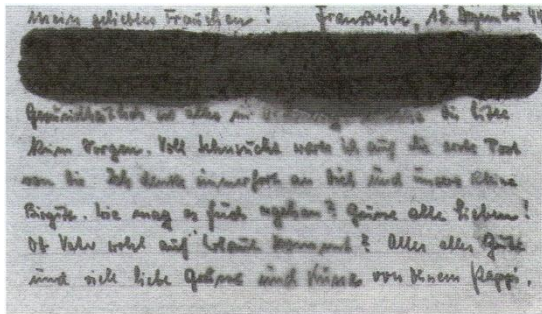 Mein geliebtes Frauchen! Frankreich, 18. Dezember 44
Gesundheitlich ist alles in die bitte
keine Sorgen. Voll Sehnsucht warte ich auf die erste Post
von Dir. Ich denke immerfort an Dich und unsere kleine
Birgitt. Wie mag es Euch ergehen? Grüsse alle Lieben!
Ob Vater wohl auf Urlaub kommt? Alles alles Gute
und viele liebe Grüsse und Küsse von Deinem Pappi.